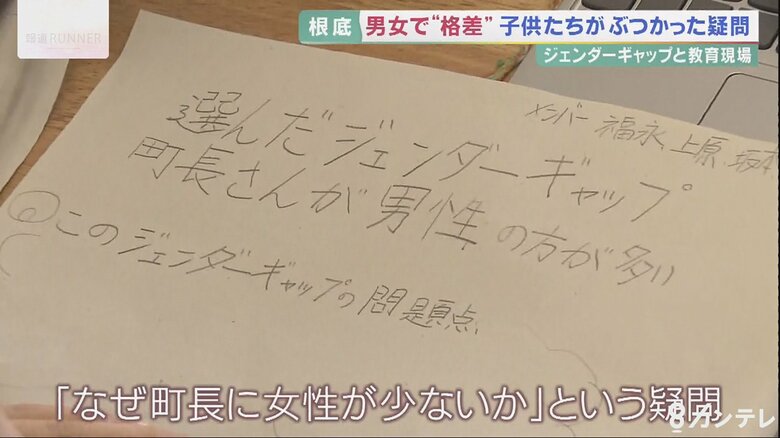 報道RUNNER
根底 男女で“格差” 子供たちがぶつかった疑問
ジェンダーギャップと教育現場
メンバー 福永、上原、坂本
選んだジェンダーギャップ
町長さんが男性の方が多い
このジェンダーギャップの問題点
「なぜ町長に女性が少ないか」という疑問
8カンテレ